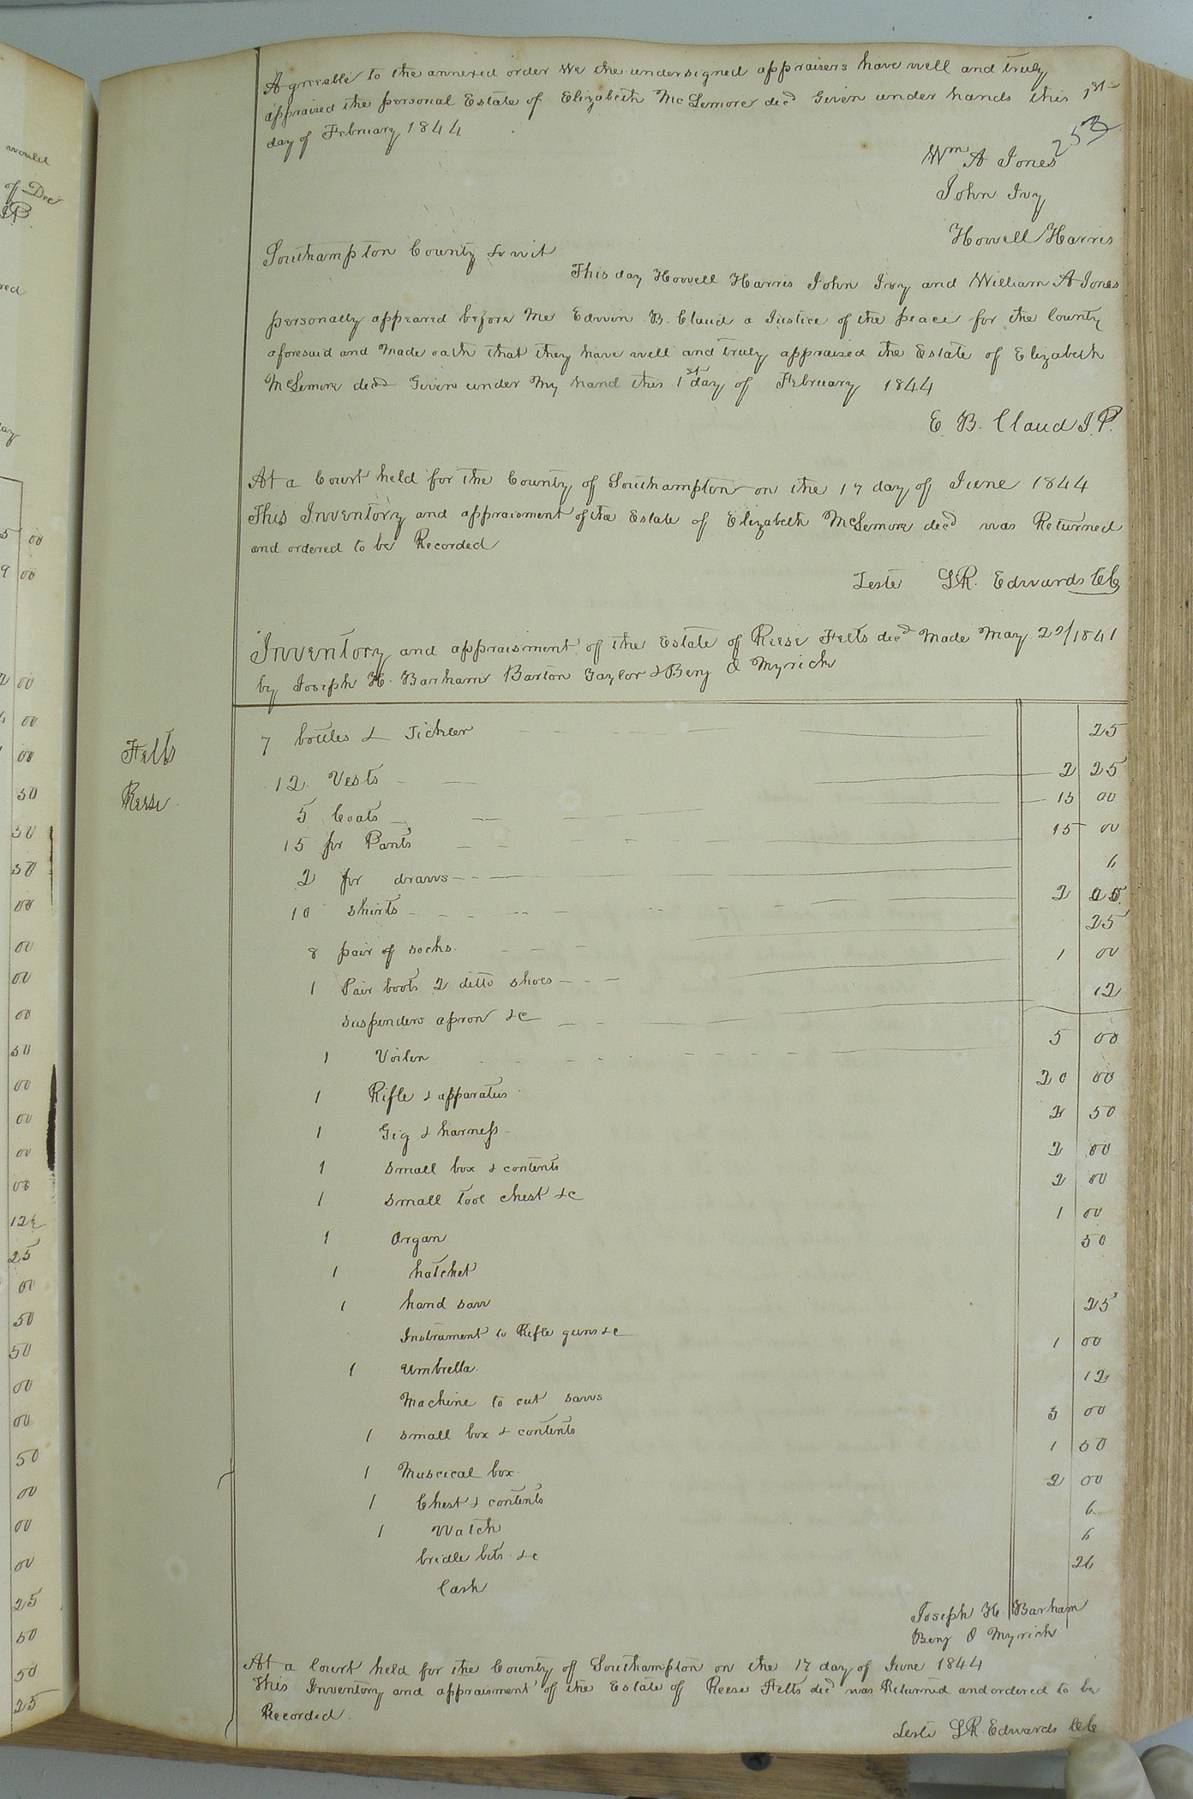 would
of Dec
J.P.
Agreeable to the annexed order We the undersigned appraisers have well and truly
appraised the personal Estate of Elizabeth McLemore decd Given under hands this 1st
day of February 1844
253
Wm A Jones
John Ivy
Howell Harris
Southampton County to wit
This day Howell Harris John Ivy and William A Jones
personally appeared before me Edwin B. Claud a Justice of the peace for the County
aforesaid and made oath that they have well and truly appraised the Estate of Elizabeth
McLemore decd Given under my hand this 1st day of February 1844
E. B. Claud J.P.
At a Court held for the County of Southampton on the 17 day of June 1844
This Inventory and appraisment of the Estate of Elizabeth McLemore decd was Returned
and ordered to be Recorded
Teste L R. Edwards CC
Felts
Reese
Inventory and appraisment of the Estate of Reese Felts decd Made May 29/1841
by Joseph H. Barham Barton Taylor & Benj D Myrick
7 bottles & Tickler 25
12 Vests 2 25
5 Coats 15 00
15 pr Pants 15 00
2 pr draws 6
10 shirts 2 25
8 pair of socks 25
1 Pair boots 2 ditto shoes 1 00
suspenders apron &c 12
1 Voilin 5 00
1 Rifle & apparatus 20 00
1 Gig & harness 2 50
1 small box & contents 2 00
1 small tool chest &c 2 00
1 Organ 1 00
1 hatchet 50
1 hand saw 25
Instrument to Rifle guns &c 1 00
1 Umbrella 12
Machine to cut saws 3 00
1 small box & contents 1 50
1 Muscical box 2 00
1 Chest & contents 6
1 Watch 6
bridle bits &c 26
Cash
Joseph H Barham
Benj D Myrick
At a Court held for the County of Southampton on the 17 day of June 1844
This Inventory and appraisment of the Estate of Reese Felts decd was Returned and ordered to be
Recorded.
Teste L R. Edwards CC